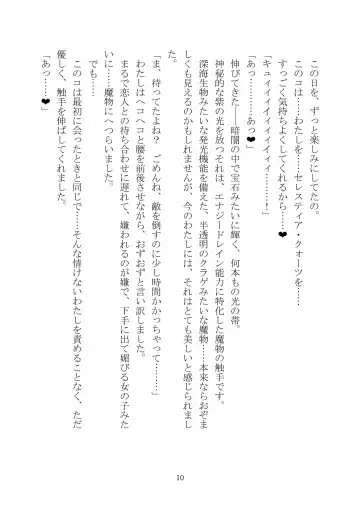 この日を、ずっと楽しみにしてたの。
このコは……わたしを……セレスティア・クォーツを……
すっごく気持ちよくしてくれるから……❤
「キュィィイイイイイィィ………！」
「あっ………あっ❤」
伸びてきた――暗闇の中で宝石みたいに輝く、何本もの光の帯。
神秘的な紫の光を放つそれは、エナジードレイン能力に特化した魔物の触手です。
深海生物みたいな発光機能を備えた、半透明のクラゲみたいな魔物……本来ならおぞま
しくも見えるのかもしれませんが、今のわたしには、それはとても美しいと感じられまし
た。
「ま、待ってたよね？　ごめんね、敵を倒すのに少し時間かかっちゃって………」
わたしはヘコヘコと腰を前後させながら、おずおずと言い訳しました。
まるで恋人との待ち合わせに遅れて、嫌われるのが嫌で、下手に出て媚びる女の子みた
いに……魔物にへつらいました。
でも…
このコは最初に会ったときと同じで……そんな情けないわたしを責めることなく、ただ
優しく、触手を伸ばしてくれました。
「あっ……❤」
10